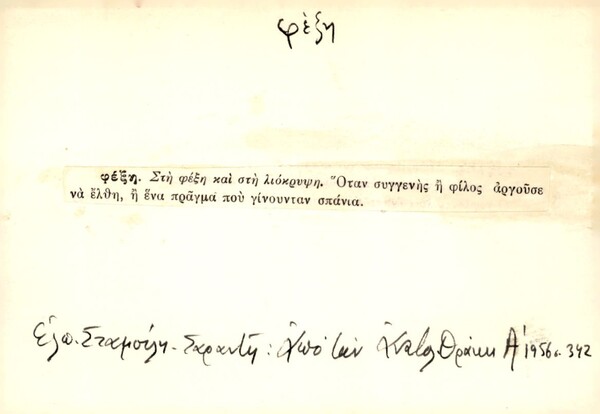 φέξη
φέξη. Στὴ φέξη καὶ στὴ λιόκρυψη. Ὅταν συγγενὴς ἢ φίλος ἀργοῦσε
νὰ ἔλθη, ἢ ἕνα πρᾶγμα ποὺ γίνουνταν σπάνια.
Ἐλπ. Σταμούλη - Σαραντῆ: Ἀπὸ τὴν Ἀνατολ. Θράκη Α' 1956 σ. 342